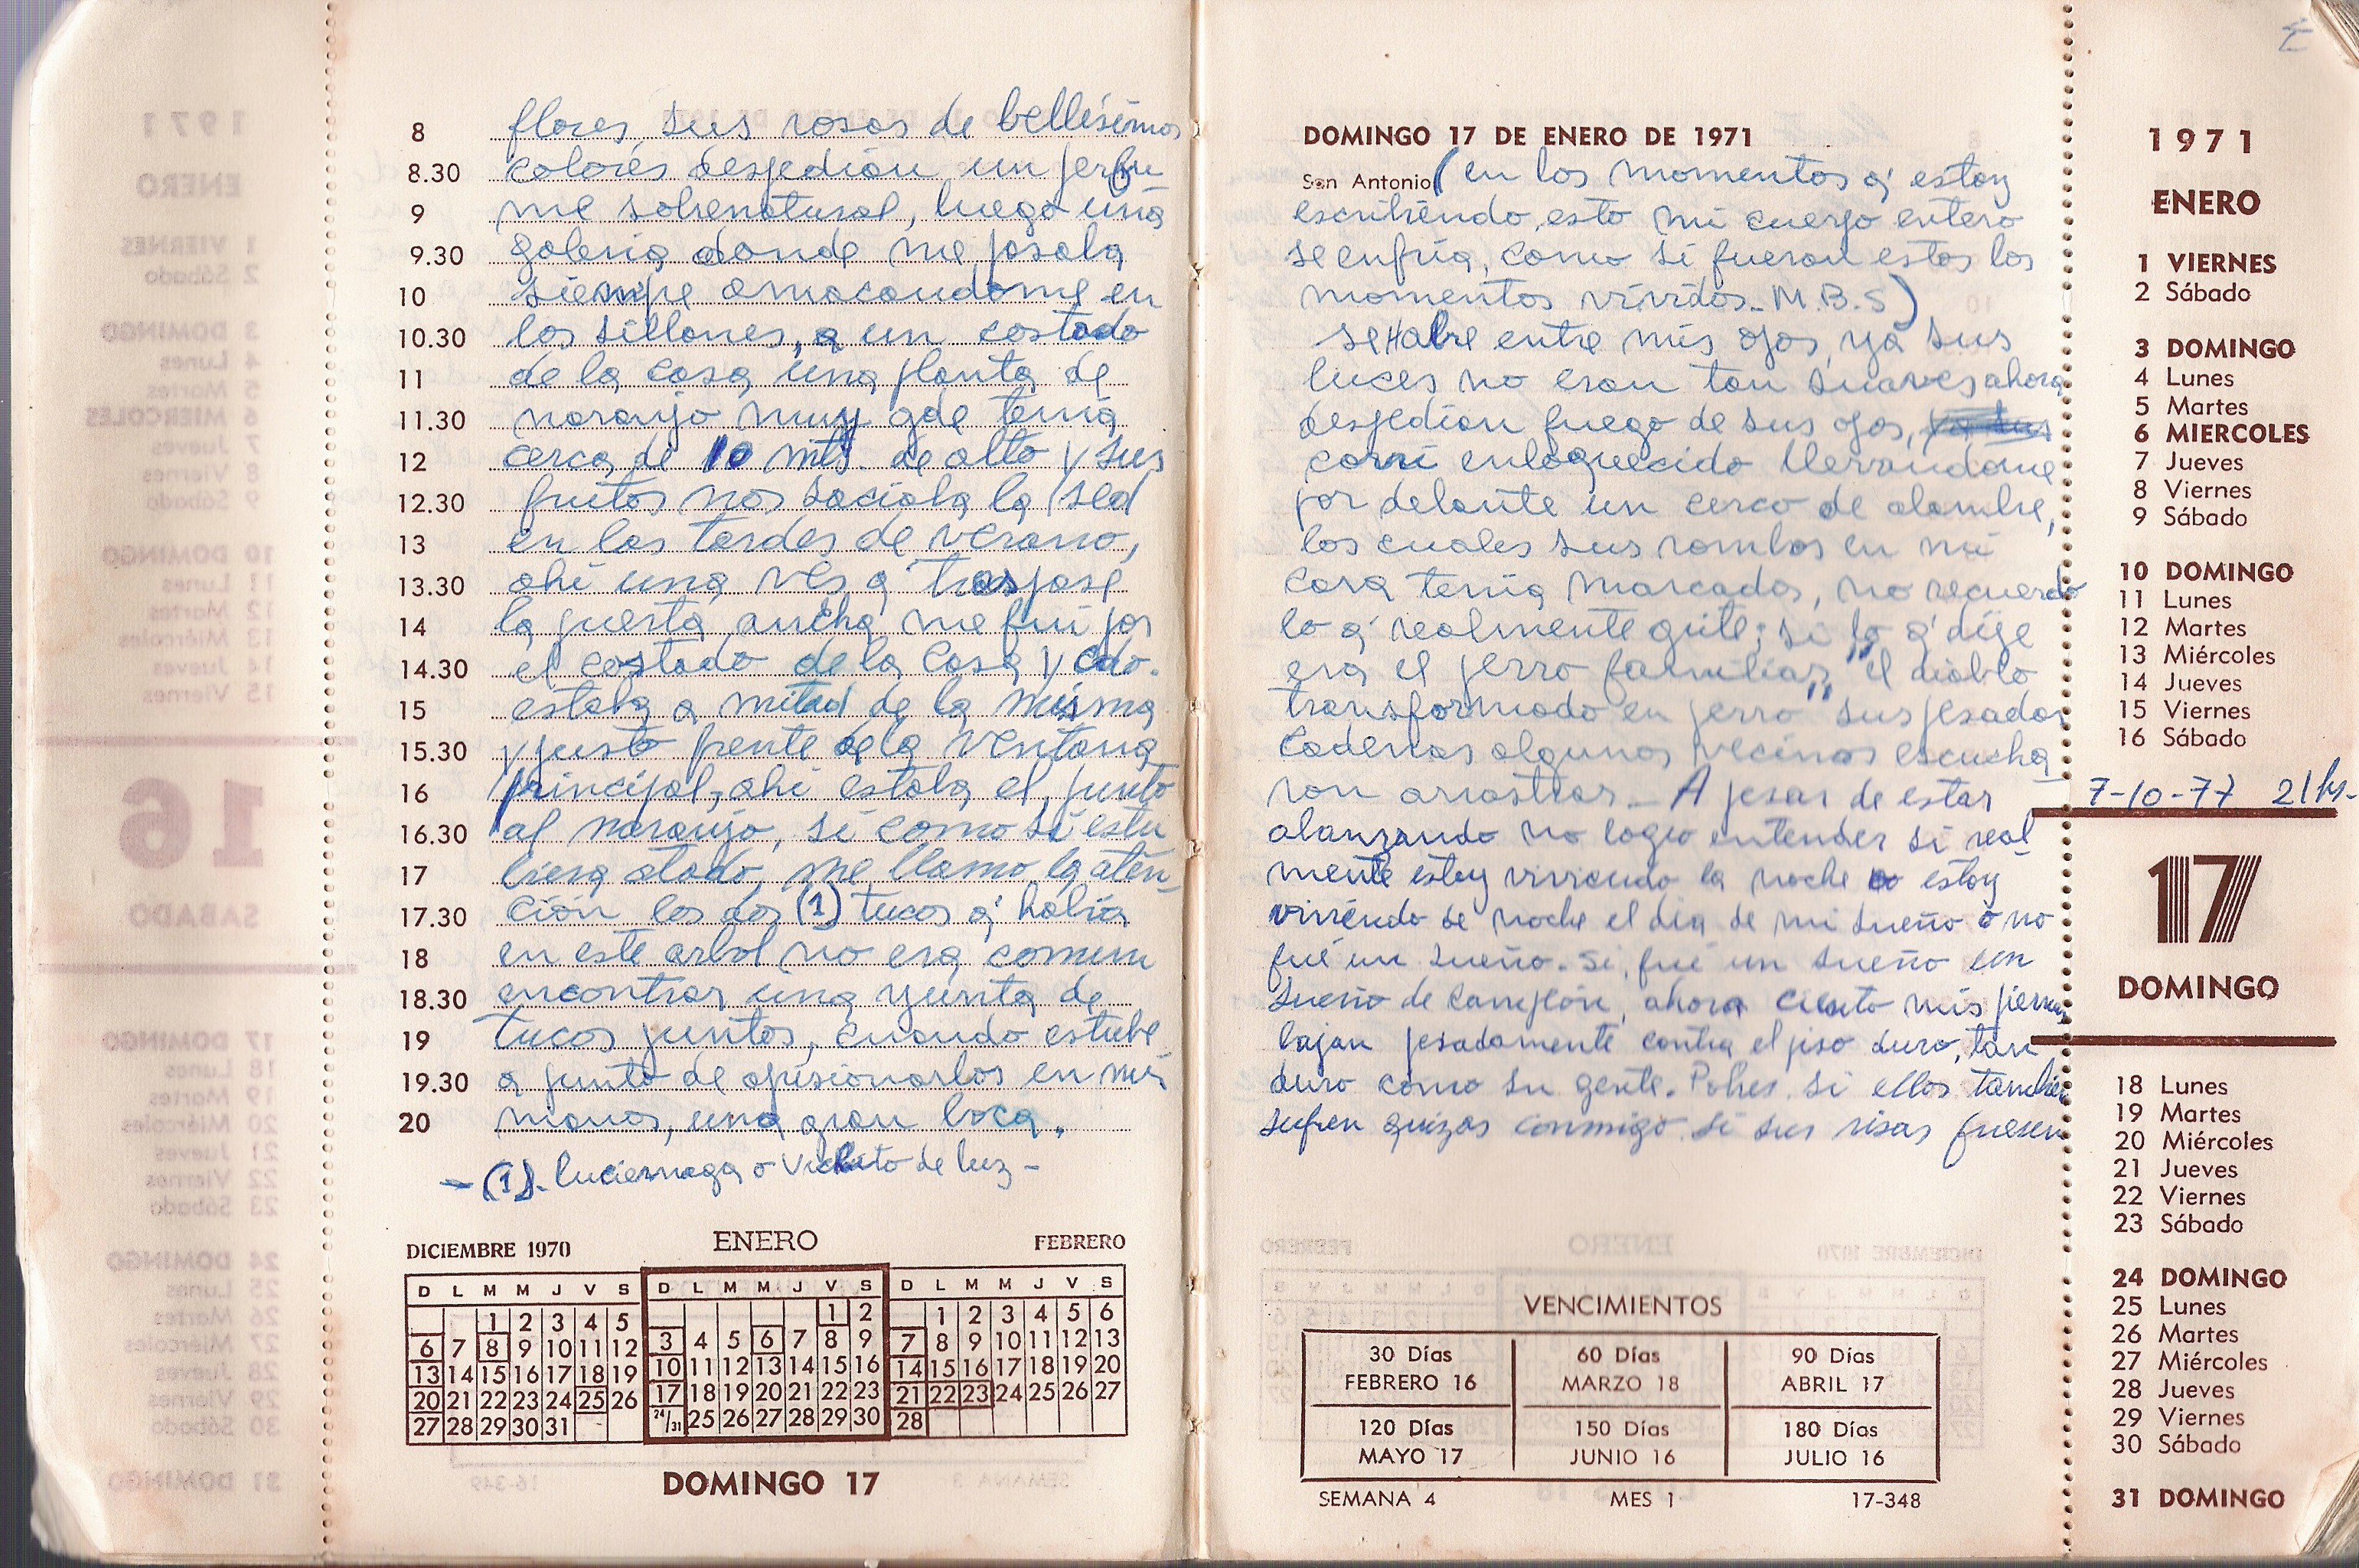 8 flores, sus rosas de bellísimos
8.30 colores despedían un perfu
9 me sobrenatural, luego una
9.30 galeria donde me posaba
10 siempre amacandome en
10.30 los sillones, a un costado
11 de la casa una planta de
11.30 naranjo muy gde tenia
12 cerca de 10 mts. de alto y sus
12.30 frutos nos saciaba la sed
13 en las tardes de verano,
13.30 ahi una ves q' traspase
14 la puerta ancha me fui por
14.30 el costado de la casa y cdo.
15 estaba a mitad de la misma
15.30 y justo frente de la ventana
16 principal, ahi estaba el, junto
16.30 al naranjo, si como si estu
17 biera atado, me llamo la aten_
17.30 ción los dos (1) tucos q' habia
18 en este arbol no era comum
18.30 encontrar una yunta de
19 tucos juntos, cuando estube
19.30 a punto de aprisionarlos en mis
20 manos, una gran boca,
- (1). luciernaga o vichito de luz -
DICIEMBRE 1970
D L M M J V S
1 2 3 4 5
6 7 8 9 10 11 12
13 14 15 16 17 18 19
20 21 22 23 24 25 26
27 28 29 30 31
ENERO
D L M M J V S
1 2
3 4 5 6 7 8 9
10 11 12 13 14 15 16
17 18 19 20 21 22 23
24/31 25 26 27 28 29 30
FEBRERO
D L M M J V S
1 2 3 4 5 6
7 8 9 10 11 12 13
14 15 16 17 18 19 20
21 22 23 24 25 26 27
28
DOMINGO 17
DOMINGO 17 DE ENERO DE 1971
San Antonio (en los momentos q' estoy
escribiendo esto mi cuerpo entero
se enfria, como si fueran estos los
momentos vividos. M.B.S)
se habre entre mis ojos, ya sus
luces no eran tan suaves ahora
despedian fuego de sus ojos,
corri enloquecido llevandome
por delante un cerco de alambre,
los cuales sus rombos en mi
cara tenia marcados, no recuerdo
lo q' realmente grite; si lo q' dije
era el perro familiar, "el diablo
transformado en perro" sus pesadas
cadenas algunos vecinos escucha_
ron arrastrar_ A pesar de estar
abanzando no logro entender si real_
mente estoy viviendo la noche o estoy
viviendo de noche el dia de mi sueño o no
fué un sueño. Si, fué un sueño un
sueño de campeón, ahora ciento mis piernas
bajan pesadamente contra el piso duro, tan
duro como su gente. Pobres si ellos tambien
sufren quizas conmigo si sus risas fuesen
VENCIMIENTOS
30 Días 60 Días 90 Días
FEBRERO 16 MARZO 18 ABRIL 17
120 Días 150 Días 180 Días
MAYO 17 JUNIO 16 JULIO 16
SEMANA 4 MES 1 17-348
1971
ENERO
1 VIERNES
2 Sábado
3 DOMINGO
4 Lunes
5 Martes
6 MIERCOLES
7 Jueves
8 Viernes
9 Sábado
10 DOMINGO
11 Lunes
12 Martes
13 Miércoles
14 Jueves
15 Viernes
16 Sábado
7-10-77 21 hs.
17
DOMINGO
18 Lunes
19 Martes
20 Miércoles
21 Jueves
22 Viernes
23 Sábado
24 DOMINGO
25 Lunes
26 Martes
27 Miércoles
28 Jueves
29 Viernes
30 Sábado
31 DOMINGO